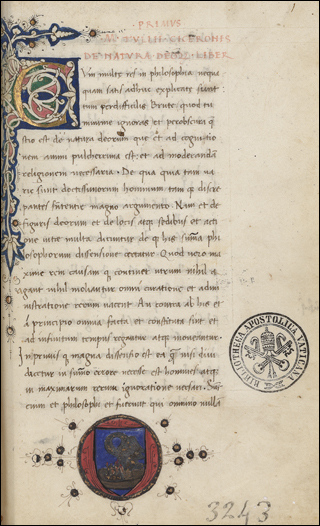 PRIMVS
M. TVLLII CICERONIS
DE NATVRA DEOR. LIBER
Vm multe res in philosophia nequa
quam satis adhuc explicate sunt
tum perdifficilis Brute quod tu
minime ignoras et perobscura q̄
stio est de natura deorum que et ad cognitio
nem animi pulcherrima est. et ad moderandā
religionem necessaria. De qua tam ua
rie sunt doctissimorum hominum tam qȝ discre
pantes sententie magno argumento. Nam et de
figuris deorum et de locis atqȝ sedibus et acti
one uite multa dicuntur deqȝ his summa phi
losophorum dissensione certatur. Quod uero ma
xime rem causam qȝ continet utrum nihil a
gant nihil moliantur omni curatione et admi
nistratione rerum uacent. An contra ab his et
a principio omnia facta et constituta sint et
ad infinitum tempus regantur atqȝ moueantur.
In primis qȝ magna dissensio est ea qȝ nisi diiu
dicetur in summo errore necesse est homines atqȝ
in maximarum rerum ignoratione uersari. Sūt
enim et philosophi et fuerunt qui omnino nulla
BIBLIOTHECA APOSTOLICA VATICANA
3243